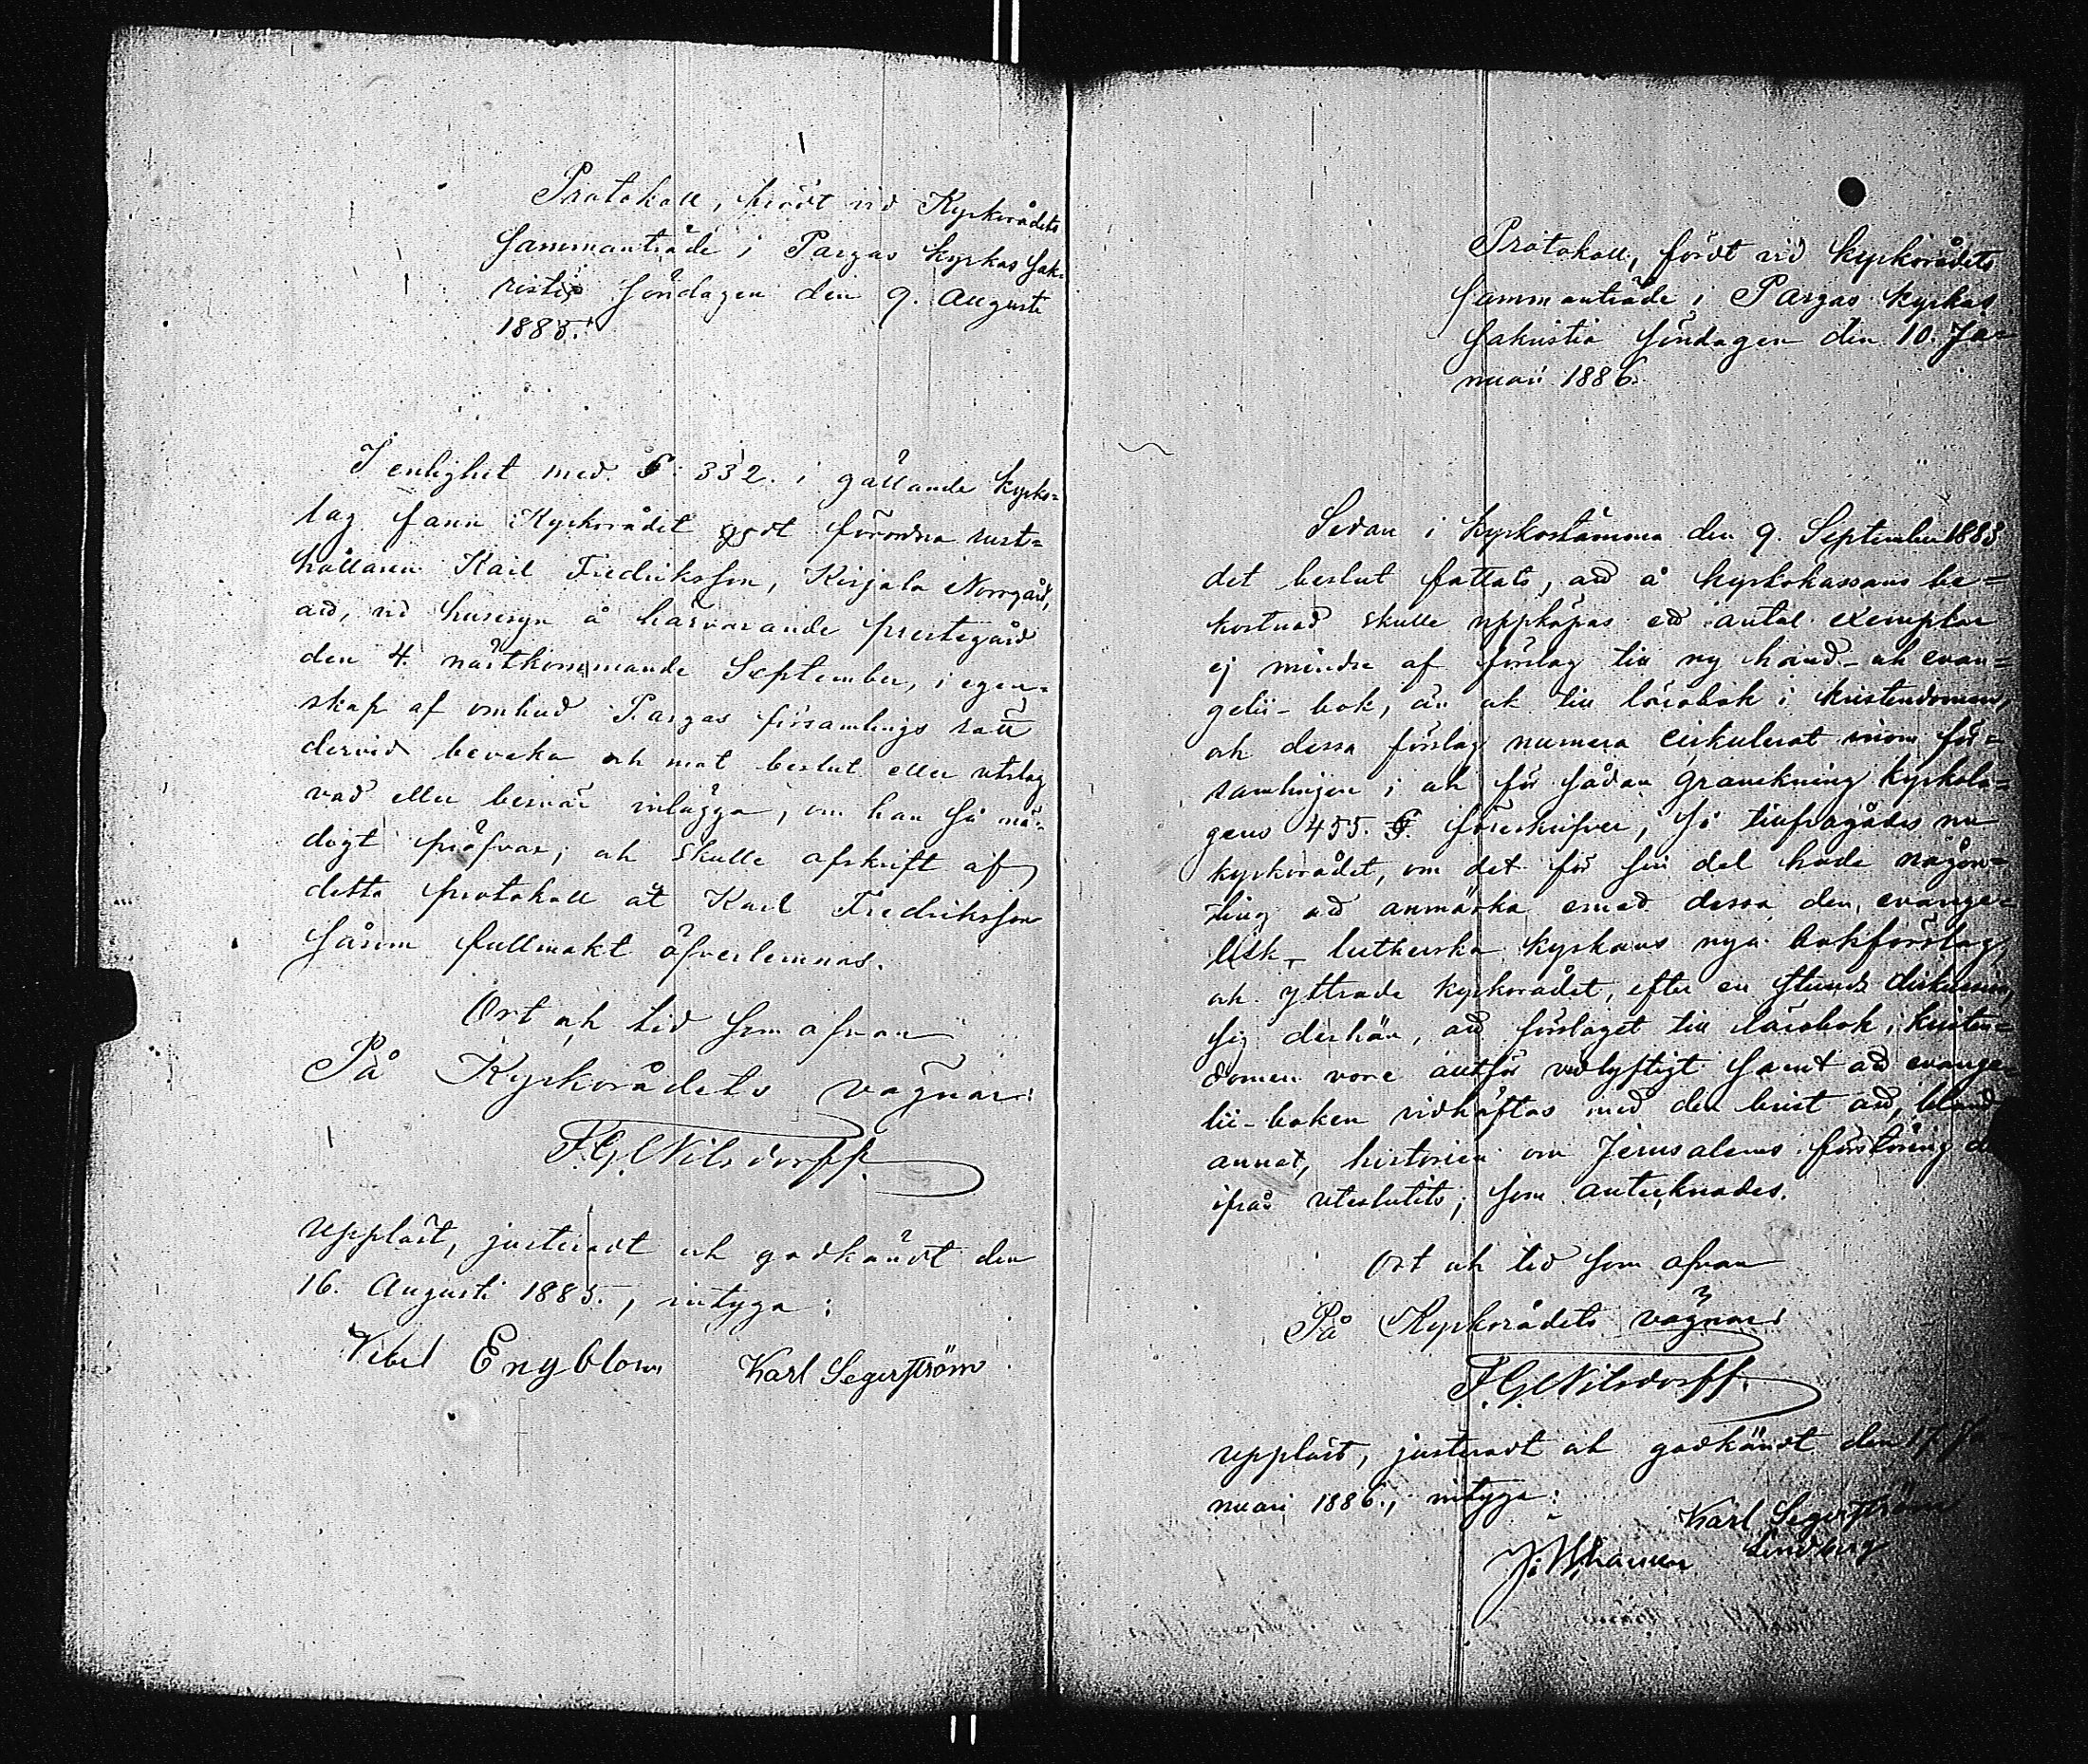 Protokoll, fördt vid Kyrkorådets
sammanträde i Pargas kyrkas sak-
ristia söndagen den 9. Augusti
1885.
I enlighet med §. 332. i gällande kyrko-
lag fann Kyrkorådet godt förordna rust-
hållaren Karl Fredriksson, Kirjala Norrgård,
att, vid husesyn å härvarande prestegård
den 4. nästkommande September, i egen-
skap af ombud Pargas församlings rätt
dervid bevaka och mot beslut eller utslag
vad eller besvär inlägga, om han så nö-
digt pröfvar; och skulle afskrift af
detta protokoll åt Karl Fredriksson
såsom fullmakt öfverlemnas.
Ort och tid som ofvan
På Kyrkorådets vägnar:
F. G. Nilsdorff.
Uppläst, justeradt och godkändt den
16. Augusti 1885., intyga:
Engblom Karl Segerström
Protokoll, fördt vid kyrkorådets
sammanträde i Pargas kyrkas
sakristia söndagen den 10. Ja-
nuari 1886.
Sedan i kyrkostämma den 9. September 1883
det beslut fattats, att å kyrkokassans be-
kostnad skulle uppköpas ett antal exemplar
ej mindre af förslag till ny hand- och evan-
gelii-bok, än ock till lärobok i kristendomen,
och dessa förslag numera cirkulerat inom för-
samlingen i och för sådan granskning kyrkola-
gens 455. §. föreskrifver, så tillfrågades nu
kyrkorådet, om det för sin del hade någon-
ting att anmärka emot dessa den evange-
lisk-lutherska kyrkans nya bokförslag,
och yttrade kyrkorådet, efter en stunds diskussion,
sig derhän, att förslaget till lärobok i kristen-
domen vore alltför vidlyftigt samt att evange-
lii-boken vidhäftas med den brist att, bland
annat, historien om Jerusalems förstöring
ifrån uteslutits; som antecknades.
Ort och tid som ofvan
På Kyrkorådets vägnar:
F. G. Nilsdorff.
Uppläst, justeradt och godkändt den 17. Ja-
nuari 1886., intyga:
Karl Segerström
Lindberg